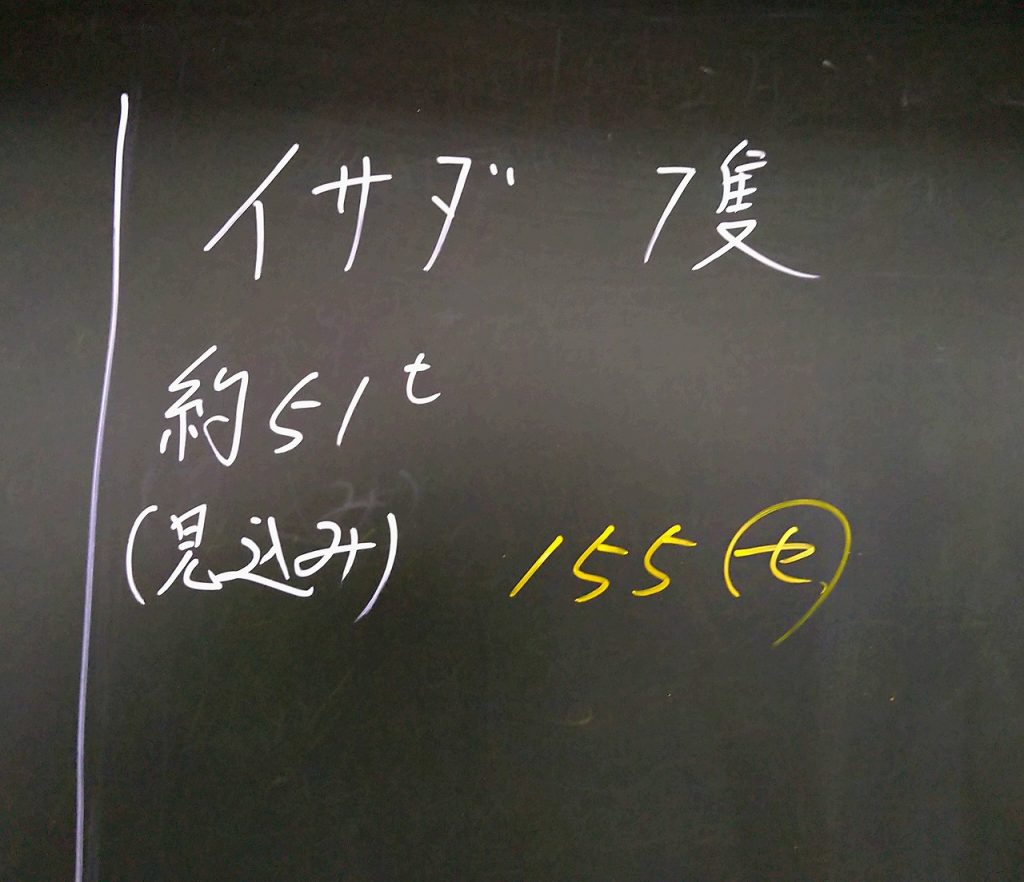 イサダ 7隻
約51t
(見込み) 155(セ)